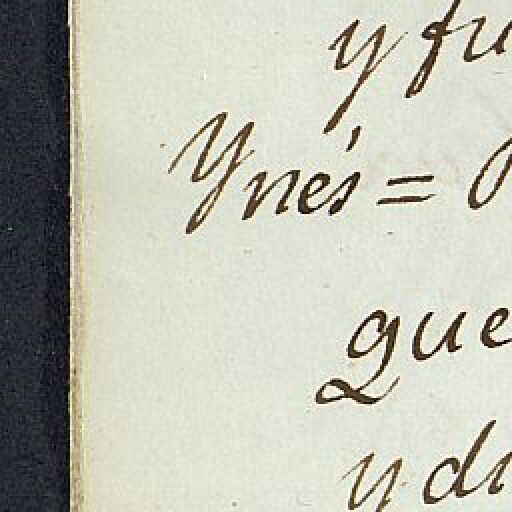 y fu
Ynés =
que
y di